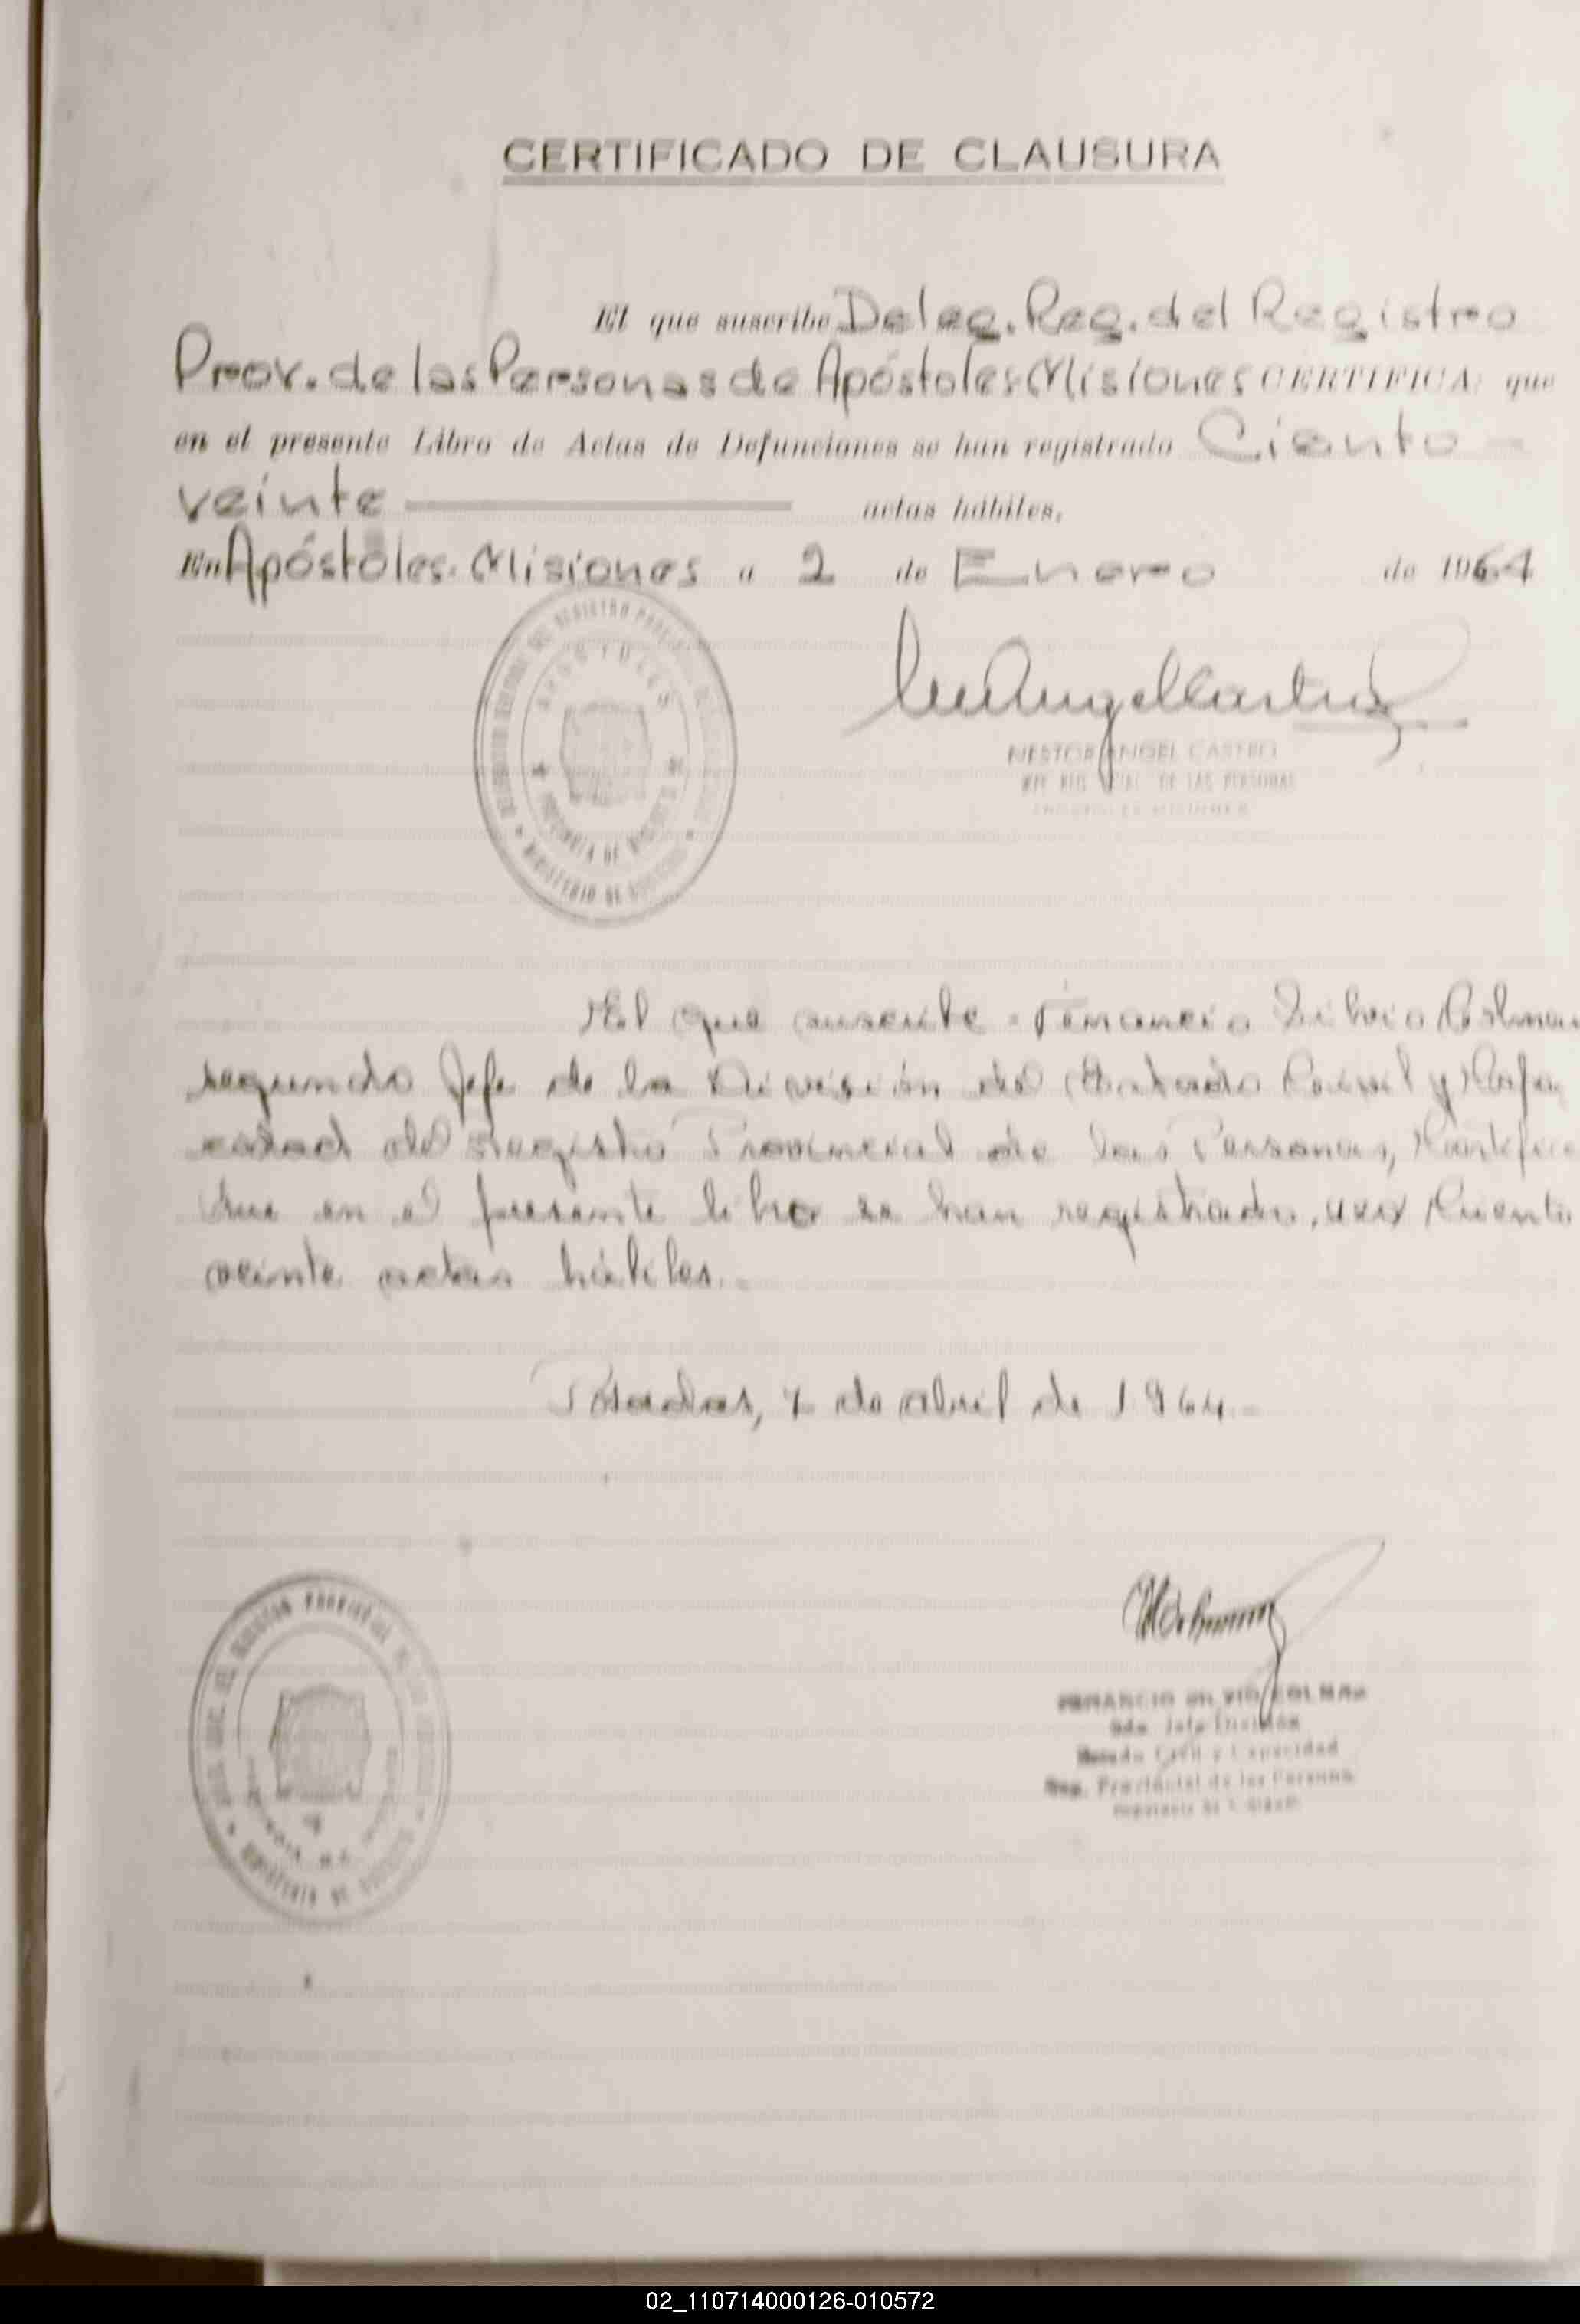 CERTIFICADO DE CLAUSURA
El que suscribe Deleg. Reg. del Registro
Prov. de las Personas de Apóstoles Misiones CERTIFICA: que
en el presente Libro de Actas de Defunciones se han registrado Ciento
veinte actas hábiles.
En Apóstoles. Misiones a 2 de Enero de 1964
APOSTOLES
PROVINCIA DE
MINISTERIO DE
NESTOR ANGEL CASTRO
DE LAS PERSONAS
El que suscribe Silvio Colman
segundo Jefe de la División del Estado Civil y Capa
cidad del Registro Provincial de las Personas, Certifica
que en el presente libro se han registrado, Ciento
veinte actas hábiles.-
Posadas, 7 de abril de 1964.-
MINISTERIO DE
COLMAN
2do. Jefe División
Estado Civil y Capacidad
Reg. Provincial de las Personas
02_110714000126-010572